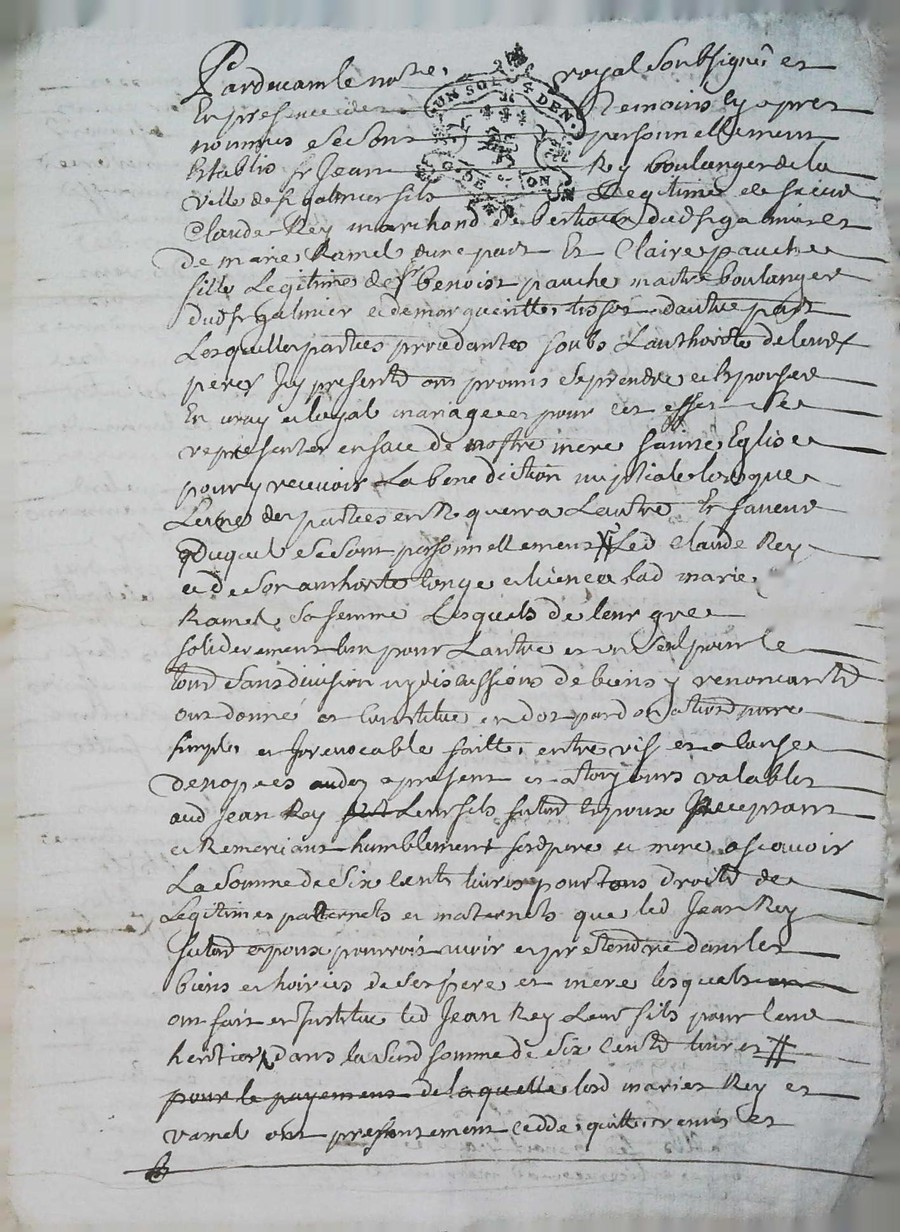 Pardevant le notre royal Soubsigné et
En presence des temoins cy apres
nommes Se Sont personnellement
Etablis Sr Jean Rey boulanger de la
ville de St galmier fils Legitime de sieur
Claude Rey marchand de dud St galmier et
de marie Ramel dune part Et Claire pauche
fille Legitime de Sr benoist pauche maitre boulanger
dud St galmier et de margueritte tisseur dautre part
Lesquelles parties procedantes soubs Lauthorité de leurs
peres Icy presents ont promis se prendre et Epouser
En vray et loyal mariage et pour cet effet se
representer en face de nostre mere sainte Eglise
pour y recevoir La benediction nuptiale lorsque
Lune des parties en Requerra Lautre En faveur
duquel se Sont personnellement Led Claude Rey
et de Son authorité lad marie
Ramel Sa femme Lesquels de leur gre
soliderement lun pour Lautre et un Seul pour le
tout Sans division ny discussions de biens y renoncants
ont donné et Constitué en dot par donation pure
simple et Irrevocable faitte entre vifs et a cause
de nopces a present et a toujours valables
aud Jean Rey Leur fils futur Epoux Acceptant
et Remerciant humblement sesd pere et mere ascavoir
La Somme de Six Cents livres pour tous droits de
Legitimes patternels et maternels que led Jean Rey
futur epoux pourroit avoir et pretendre dans les
biens et hoiries de Ses pere et mere lesquels
ont fait et Institué led Jean Rey Leur fils pour leur
heritier dans lad somme de Six Cents livres
pour le payement de laquelle lesd maries Rey et
ramel ont presentement cedde quitte remis et
UN SOL 4 DEN
G. DE ON